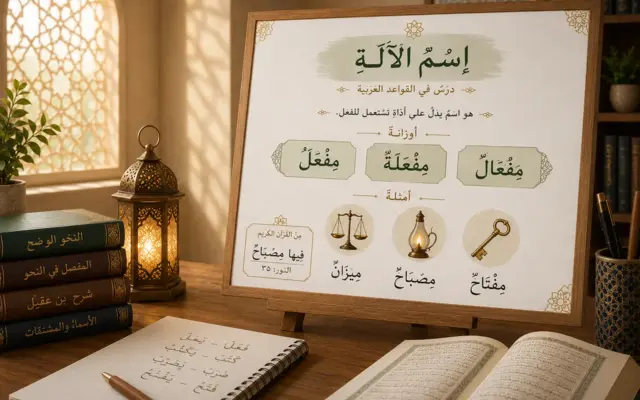 إِسْمُ الْآلَـةِ
درْسٌ في القواعد العَرَبية
هو اسمٌ يدَلُّ علي أَدَاةٍ تَسْتعمل للفعل.
أوزانـةٌ
مَِفْعَالٌ مِفْعَلَةٌ مِفْعَلُ
أَمثلـةٌ
مِفْتَاحٌ مِصْبَاحٌ مِيزَانٌ
مِنَ القُرْآن الكريم
فِيها مِصْبَاحٌ
النور: ٣٥
النحو الوضح
المفصل في النحو
شرح بن عقيل
الأسماء والمشتقات